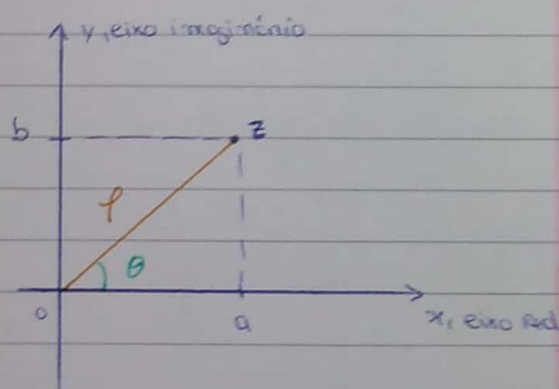 y, eixo imaginário
b
z
ρ
θ
0
a
x, eixo real